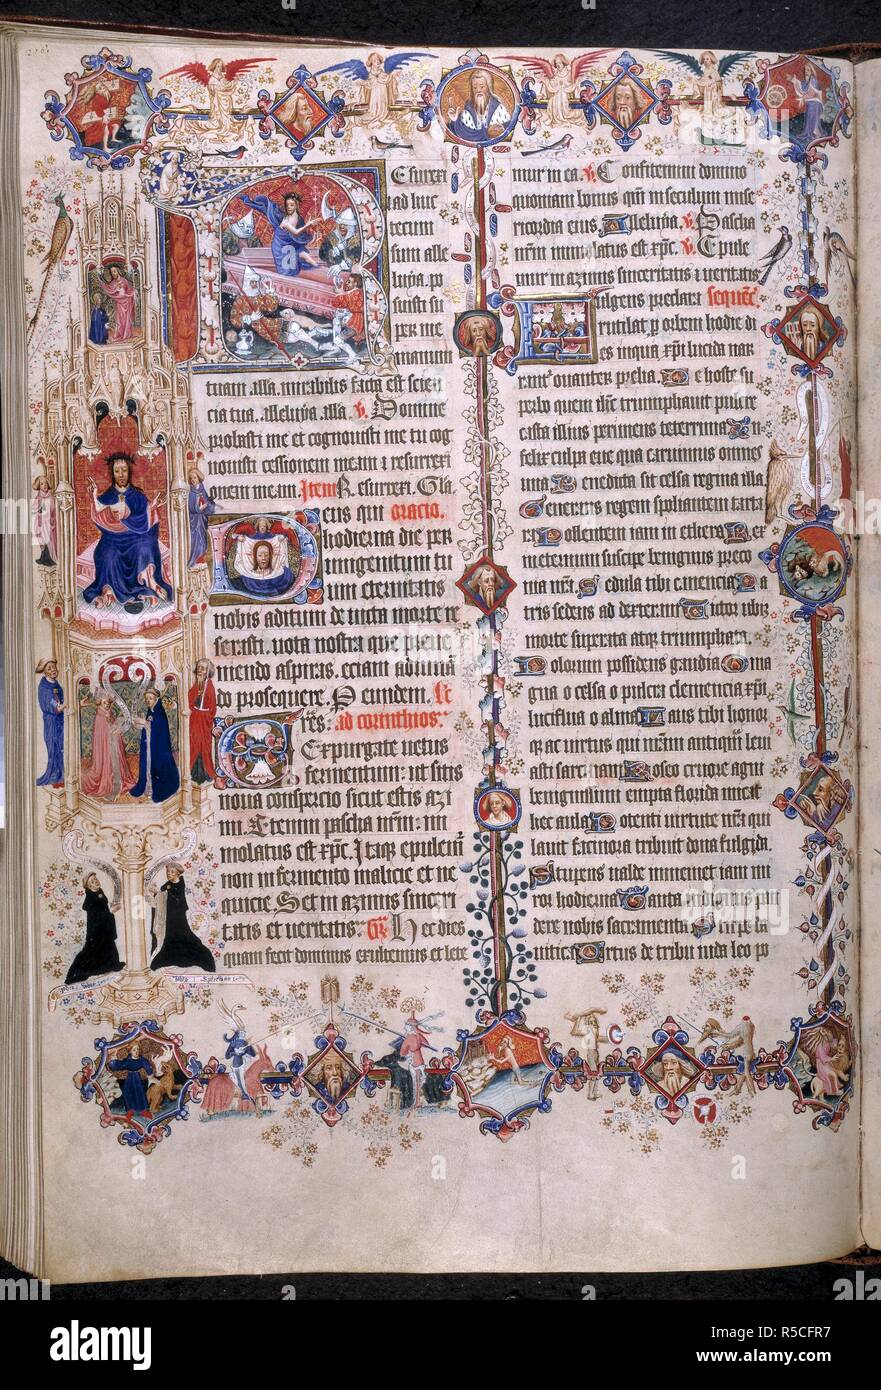 Esurexi
ad huc
tecum
sum alle
luya. po
suisti su
per me
manum
tuam alla. mirabilis facta est scien
cia tua. alleluya. alla. V. Domine
probasti me et cognovisti me tu cog
novisti cessionem meam et resurrexi
onem meam. Item R. esurrexi. Gla.
eus qui oracio.
hodierna die per
unigenitum tu
um eternitatis
nobis aditum devicta morte re
serasti. vota nostra que preve
niendo aspiras. eciam adiuvan
do prosequere. P eundem. Lc
ad corinthios.
Expurgate vetus
fermentum: ut sitis
nova conspercio sicut estis azi
mi. Etenim pascha nrm: im
molatus est xpc. Itaq epulem
non in fermento malicie et ne
quicie. Set in azimis sinceri
tatis et veritatis. Gr. Hec dies
quam fecit dominus exultemus et lete
mur in ea. V. Confitemini domino
quoniam bonus qm in seculum mise
ricordia eius. Alleluya. V. Pascha
nrm immolatus est xpc. V. Epule
mur in azimis sinceritatis et veritatis
ulgens preclara sequenc
rutilat p orbem hodie di
es in qua xpi lucida nar
rant ovanter prelia. De hoste su
perbo quem ihc triumphavit pulcre
castra illius perimens teterrima. In
felix culpa eve qua caruimus omnes
vita. Benedicta sit celsa regina illa
Generans regem spoliantem tarta
ra. Pollentem iam in ethera. Rex
in eternum suscipe benignus preco
nia nra. Sedula tibi canencia. Pa
tris sedens ad dexteram. Victor ubiq
morte superata atq triumphata.
Polorum possidens gaudia. O ma
gna o celsa o pulcra clemencia xpi
luciflua o alma. Laus tibi honor
q ac virtus qui nram antiqua levi
asti sarcinam. Roseo cruore agni
benignissimi empta florida micat
hec aula. Potenti virtute nra qui
lavit facinora tribuit dona fulgida.
Stupens valde in memet iam mi
ror hodierna. Tanta indignis pan
dere nobis sacramenta. Stirpe da
vitica. Ortus de tribu iuda leo po
alamy
Image ID: R5CFR7
www.alamy.com